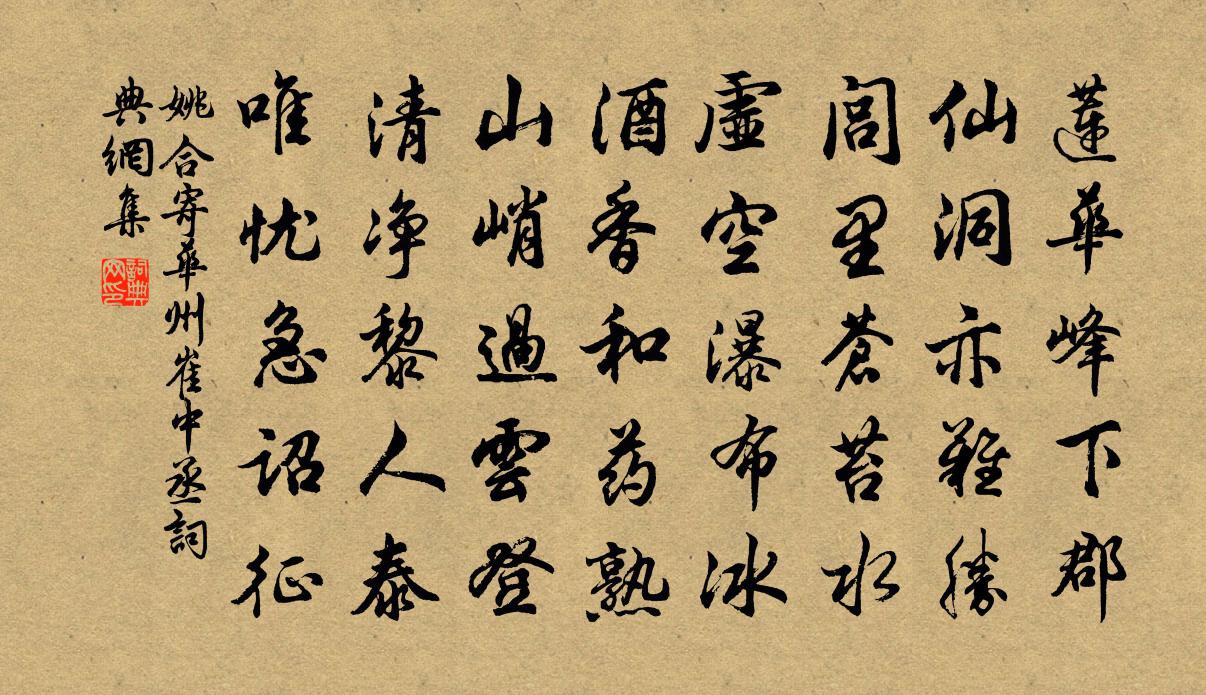 蓮華峰下郡
仙洞亦難勝
閭里蒼苔水
虛空瀑布冰
酒香和药熟
山峭過雲登
清净黎人泰
唯忧急诏征
姚合寄華州崔中丞詞
典網集
詞典
网印